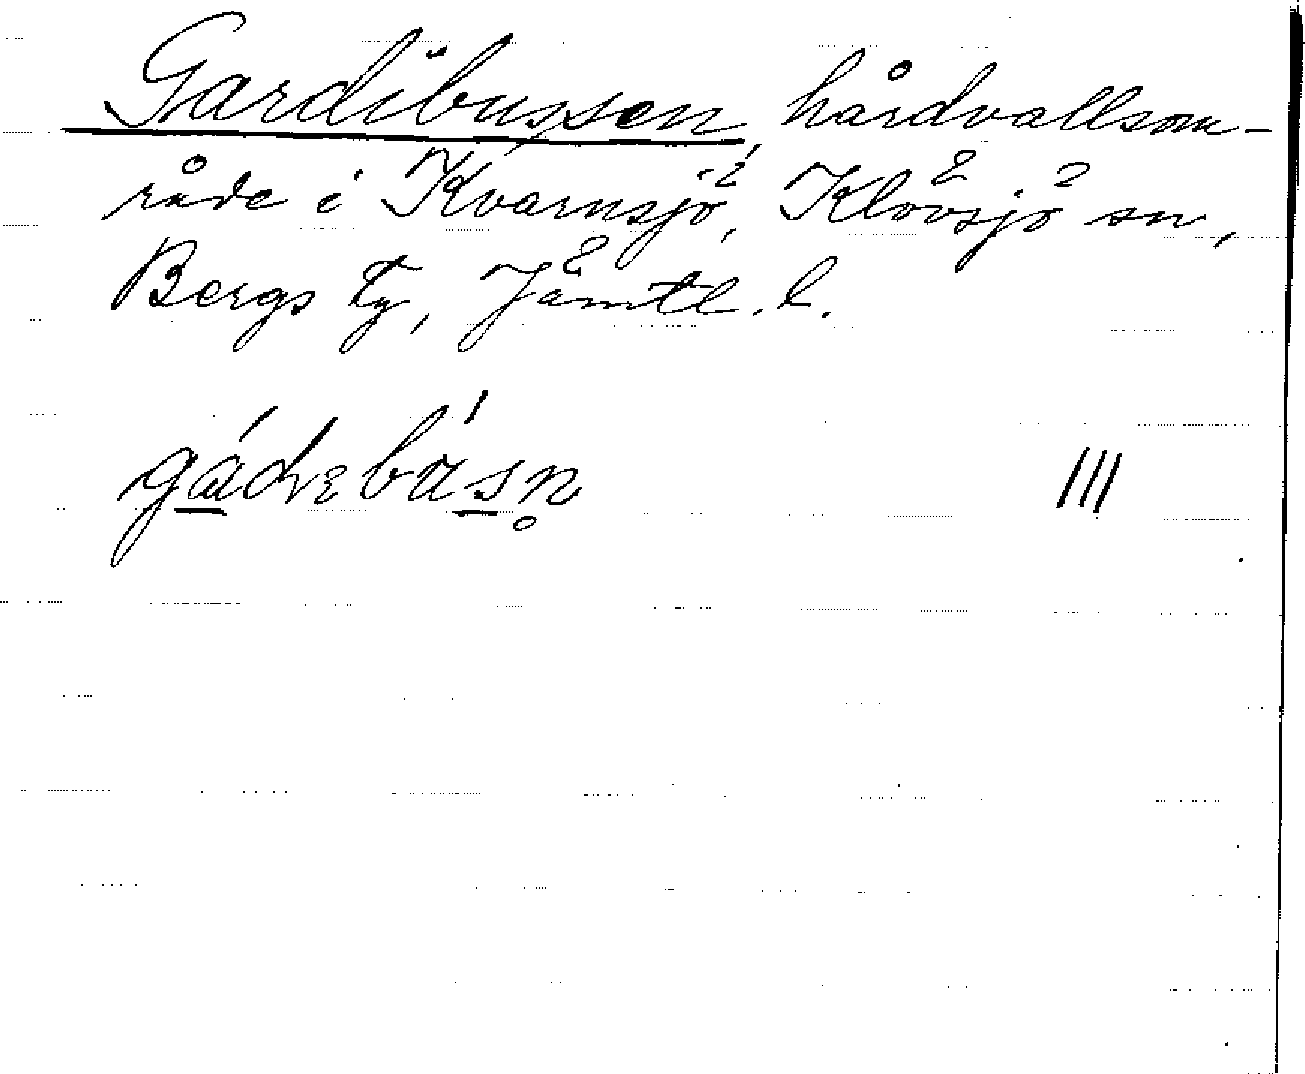 Gardibussen, hårdvallsom-
råde i Kvarnsjö, Klövsjö sn,
Bergs tg, Jämtl. l.
III